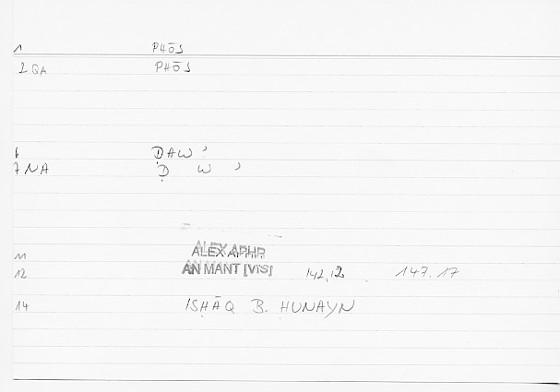 1 PHŌS
2 QA PHŌS
6 ḌAW ʾ
7 NA Ḍ W ʾ
11 ALEX APHR
12 AN MANT [VIS] 142,12 147.17
14 ISḤĀQ B. ḤUNAYN